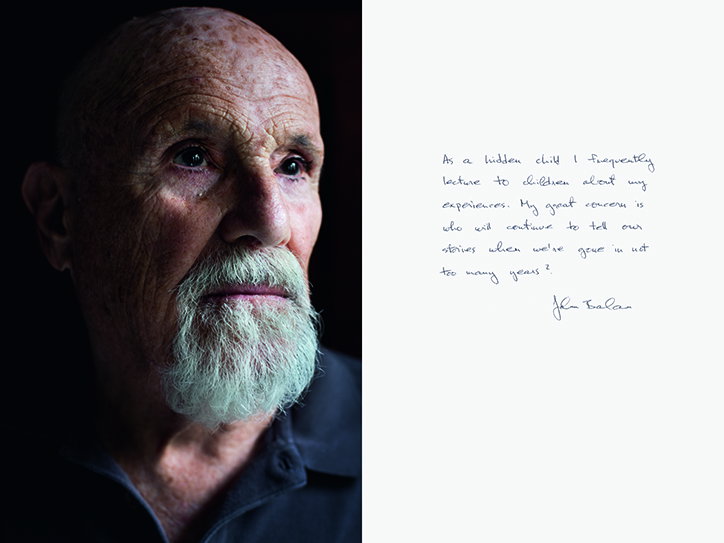 As a hidden child I frequently
lecture to children about my
experiences. My great concern is
who will continue to tell our
stories when we're gone in not
too many years?
John Balan